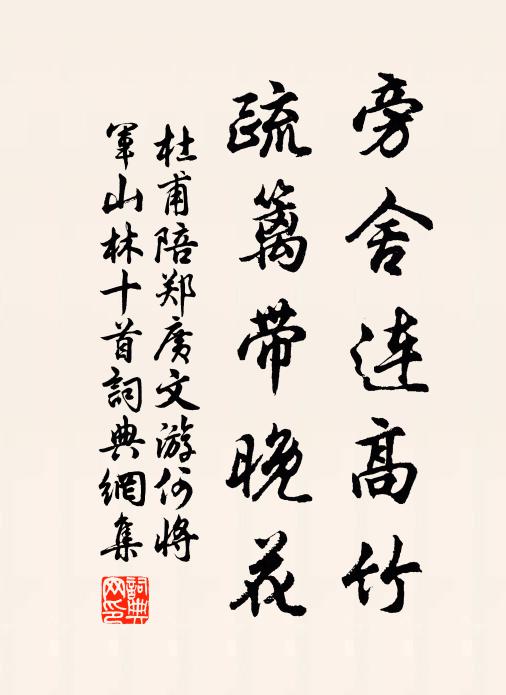 旁舍连高竹
疏篱带晚花
杜甫陪郑广文游何将
軍山林十首詞典網集
詞典
网印